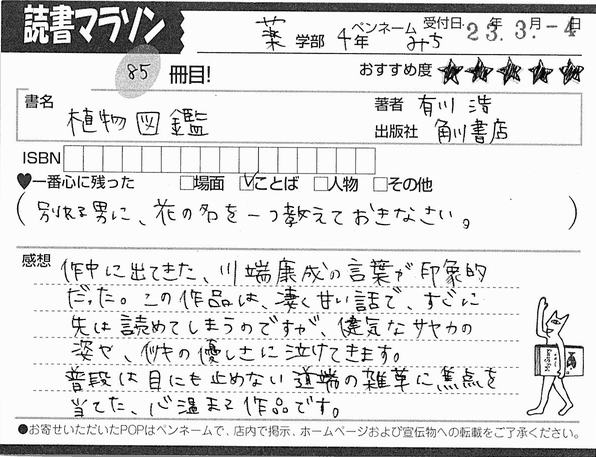 読書マラソン
薬学部 4年 ペンネーム みち 受付日. 23.年3.月-4日
85 冊目! おすすめ度 ★★★★★
書名 植物図鑑
著者 有川 浩
出版社 角川書店
ISBN
♥一番心に残った □場面 ☑ことば □人物 □その他
(別れる男に、花の名を一つ教えておきなさい。)
感想
作中に出てきた、川端康成の言葉が印象的
だった。この作品は、凄く甘い話で、すぐに
先は読めてしまうのですが、健気なサヤカの
姿や、イツキの優しさに泣けてきます。
普段は目にも止めない道端の雑草に焦点を
当てた、心温まる作品です。
●お寄せいただいたPOPはペンネームで、店内で掲示、ホームページおよび宣伝物への転載をご了承ください。